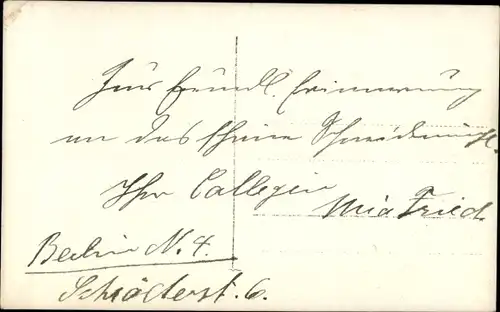 Zur freundl. Erinnerung
an das schöne Schneidemühl.
Ihre Collegin
Mia Fried
Berlin N. 4.
Schröderst. 6.